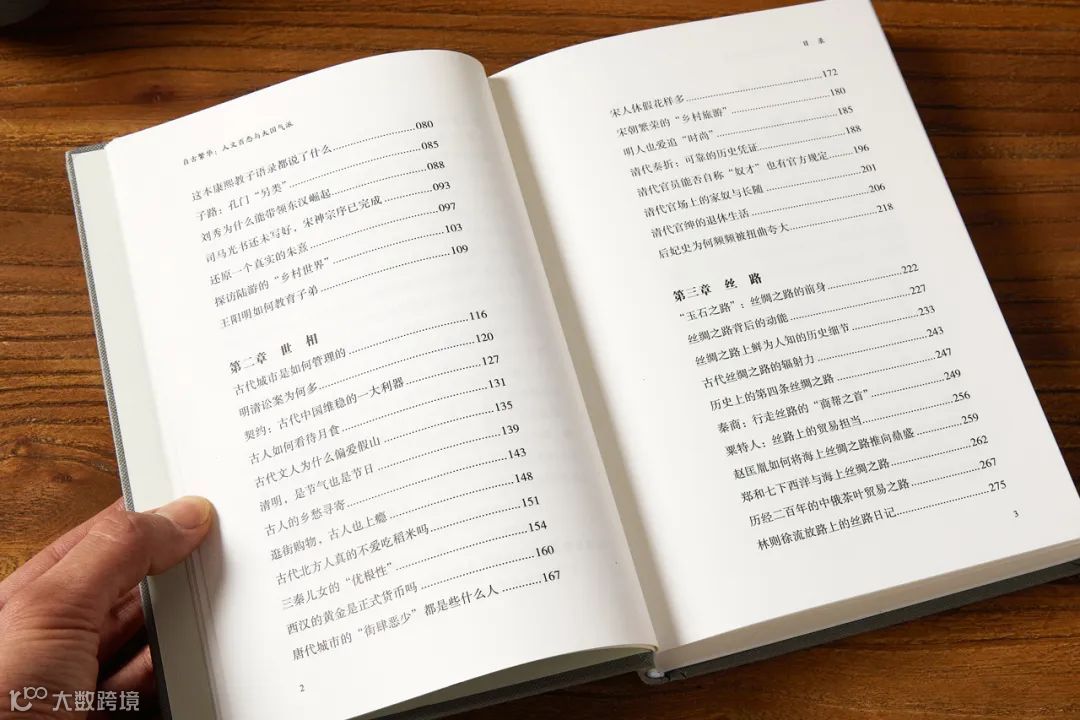 自古繁华：人文百态与大国气派
这本康熙教子语录都说了什么……080
子路：孔门“另类”……085
刘秀为什么能带领东汉崛起……088
司马光书还未写好，宋神宗序已完成……093
还原一个真实的朱熹……097
探访陆游的“乡村世界”……103
王阳明如何教育子弟……109
第二章 世 相
古代城市是如何管理的……116
明清讼案为何多……120
契约：古代中国维稳的一大利器……127
古人如何看待月食……131
古代文人为什么偏爱假山……135
清明，是节气也是节日……139
古人的乡愁寻寄……143
逛街购物，古人也上瘾……148
古代北方人真的不爱吃稻米吗……151
三秦儿女的“优根性”……154
西汉的黄金是正式货币吗……160
唐代城市的“街肆恶少”都是些什么人……167
2
目 录
宋人休假花样多……172
宋朝繁荣的“乡村旅游”……180
明人也爱追“时尚”……185
清代奏折：可靠的历史凭证……188
清代官员能否自称“奴才”也有官方规定……196
清代官场上的家奴与长随……201
清代官绅的退休生活……206
后妃史为何频频被扭曲夸大……218
第三章 丝 路
“玉石之路”：丝绸之路的前身……222
丝绸之路背后的动能……227
丝绸之路上鲜为人知的历史细节……233
古代丝绸之路的辐射力……243
历史上的第四条丝绸之路……247
秦商：行走丝路的“商帮之首”……249
粟特人：丝路上的贸易担当……256
赵匡胤如何将海上丝绸之路推向鼎盛……259
郑和七下西洋与海上丝绸之路……262
历经二百年的中俄茶叶贸易之路……267
林则徐流放路上的丝路日记……275
3
大数跨境